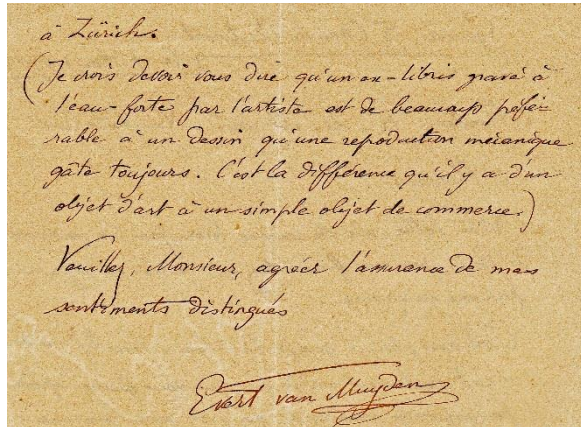 à Zürich.
(Je crois devoir vous dire qu'un ex-libris gravé à
l'eau-forte par l'artiste est de beaucoup préfé-
rable à un dessin qu'une reproduction mécanique
gâte toujours. C'est la différence qu'il y a d'un
objet d'art à un simple objet de commerce.)
Veuillez, Monsieur, agréer l'assurance de mes
sentiments distingués
Evert van Muyden